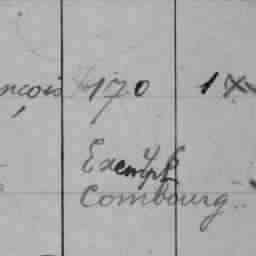 nçois 170 1
Exempt
Combourg